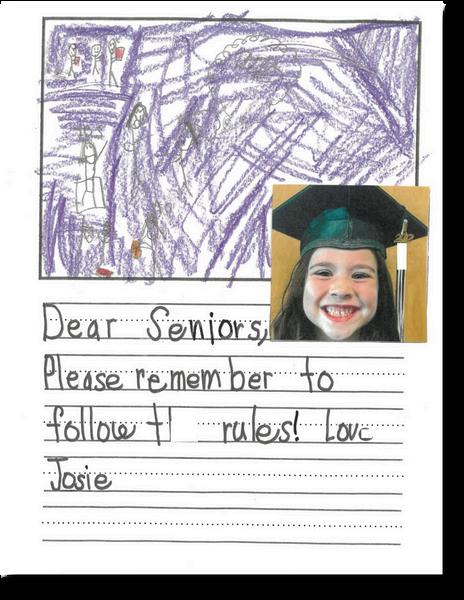 Dear Seniors,
Please remember to
follow rules! Love
Josie